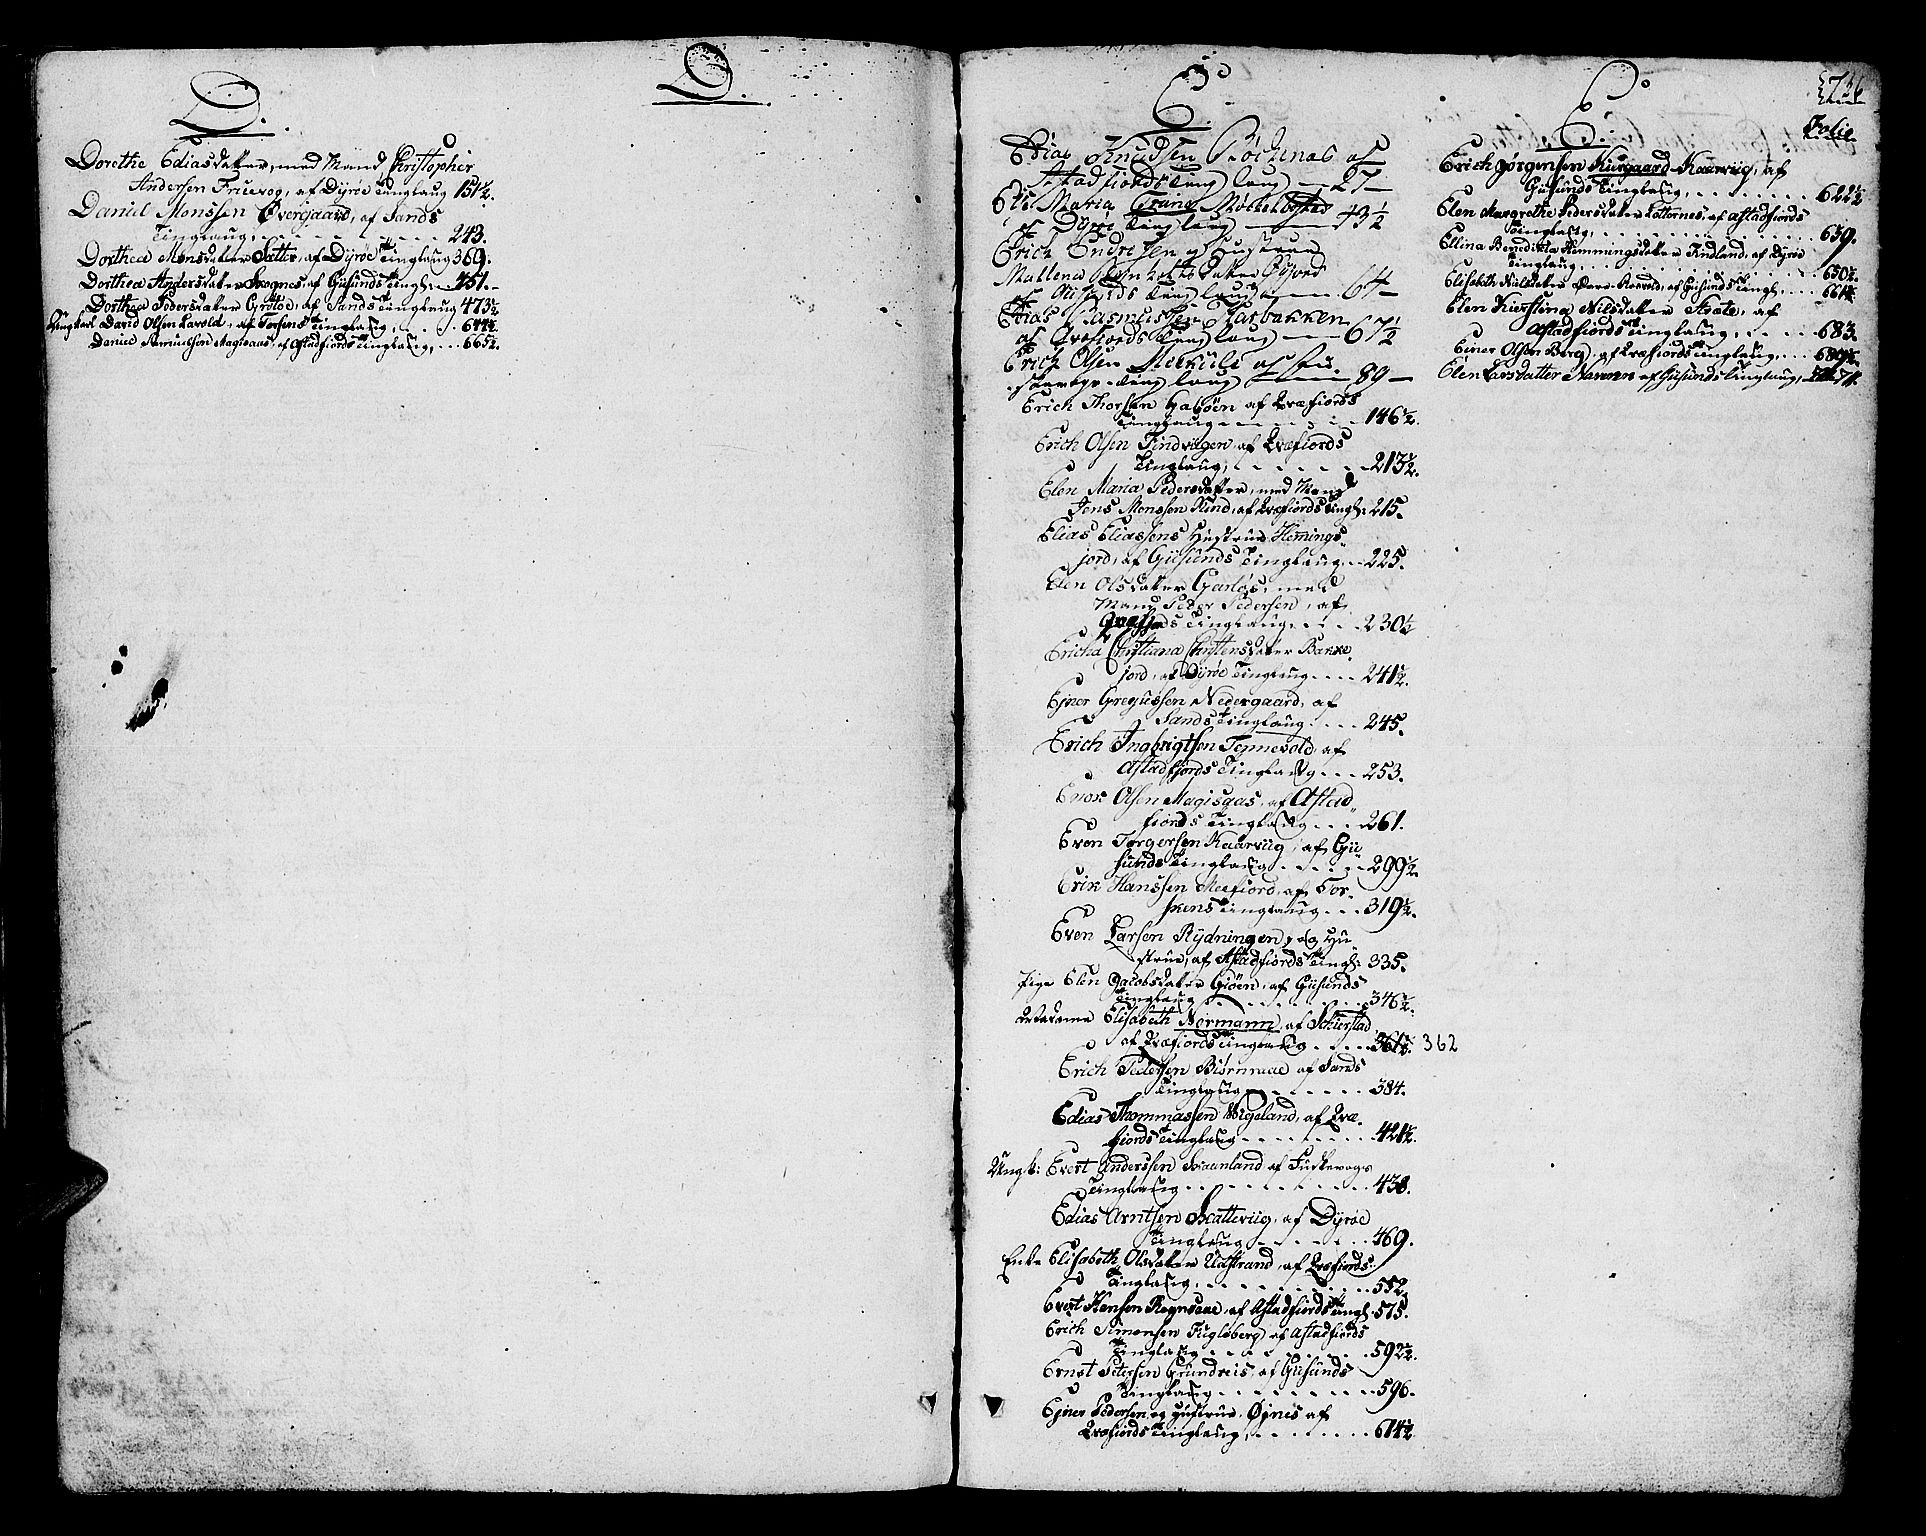 D.
D.
Dorethe Ediasdatter, med Mand Christopher
Andersen Fruevog, af Dyrøe Tinglaug 151½.
Daniel Monssen Øvergaard, af Sands
Tinglaug, 243.
Dorthea Monsdatter Sætter, af Dyrøe Tinglaug 369.
Dorthea Andersdatter Skognes, af Gisunds Tingl: 451.
Dorthea Pedersdatter Grøtøe, af Sands Tinglaug 473½
Ungkarl David Olsen Lavold, af Torskens Tinglaug, 644½.
Daniel Samuelsen Magisaas, af Astadfiords Tinglaug, 665½.
E.
Edias Knudsen af
Astadfiords Ting laug 27
Maria Trane
af Dyrøe Ting laug 43½
Erich Endresen og Hustrue
Mallena datter
Ting laug 64
Edias Rasmussen Harbakken
af Qvæfiords Ting laug 67½
Erich Olsen af
Ting laug 89
Erich Thorsen af Qvæfiords
Tinglaug 146½.
Erich Olsen Findvigen, af Qvæfiords
Tinglaug, 213½.
Elen Maria Pedersdatter, med Mand
Jens Monssen Kind, af Qvæfiords Tingl: 215.
Elias Eliassens Hustrue Hemings
jord, af Gisunds Tinglaug 225.
Elen Olsdatter med
Mand Peder Pedersen, af
Qvæfiords Tinglaug 230½
Ericha Christiana Christensdatter Bakke
jord, af Dyrøe Tinglaug 241½.
Ejner Gregussen Nedergaard, af
Sands Tinglaug 245.
Erich Ingbrigtsen Tennevold, af
Astadfjords Tinglaug 253.
Enok Olsen Magisaas, af Astad
fiords Tinglaug 261.
Even Torgersen Kaarviig, af Gi
sunds Tinglaug 299½.
Erik Hanssen Meefiord, af Tor
skens Tinglaug 319½.
Even Larsen Rydningen, og Hu
strue, af Astadfiords Tingl: 335.
Pige Elen Jacobsdatter Giøen, af Gisunds
Tinglaug 346½.
Elisabeth Normann af
af Qvæfiords Tinglaug 361½. 362
Erich Pedersen Biørnraae af Sands
Tinglaug 384.
Edias Thommassen Vigeland, af Qvæ
fiords Tinglaug 421½.
Ungk: Evert Anderssen Svanland af
Tinglaug 438.
Edias Arntsen Skatteviig, af Dyrøe
Tinglaug 469.
Enke Elisabeth Olsdatter Udstrand, af Qvæfiords
Tinglaug, 552.
Evert Hansen Rognsaae, af Astadfiords Tingl. 575.
Erich Simonsen Fugleberg, af Astadfiords
Tinglaug 592½.
Ernst Petersen Grundreis, af Gisunds
Tinglaug 596.
Ejner Pedersen og Hustrue. Øjnes af
Qvæfiords Tinglaug, 614½
E.
736
Folio
Erich Jørgensen Kiergaard Kaarviig, af
Gisunds Tinglaug, 622½
Elen Margrethe Pedersdatter Totternes, af Astadfiords
Tinglaug, 639.
Ellina Benedikta Hemmingsdatter Indland, af Dyrøe
Tinglaug 650½.
Elisabeth Nielsdatter af Gisunds Tingl. 661½
Elen Kierstina Nilsdatter af
Astadfiords Tinglaug, 683.
Ejner Olsen Berg, af Qvæfiords Tinglaug, 689½.
Elen Larsdatter af Gisunds Tinglaug, 711.